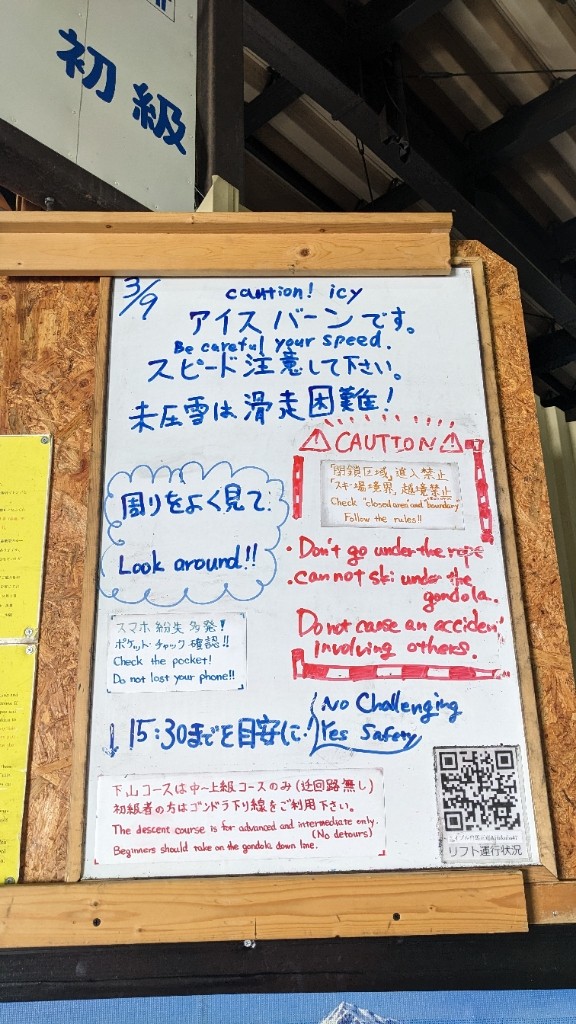 初級
3/9
caution! icy
アイスバーンです。
Be careful your speed.
スピード注意して下さい。
未圧雪は滑走困難!
周りをよく見て
Look around!!
スマホ紛失多発!
ポケット・チャック確認!!
Check the pocket!
Do not lost your phone!!
CAUTION
「閉鎖区域」進入禁止
「スキー場境界」越境禁止
Check "closed area and" boundary
Follow the rules!!
・Don't go under the rope
・can not ski under the
gondola.
Do not cause an accident
involving others.
↓15:30までを目安に!
No Challenging
Yes Safety
下山コースは中〜上級コースのみ(迂回路無し)
初級者の方はゴンドラ下り線をご利用下さい。
The descent course is for advanced and intermediate only.
(No detours)
Beginners should take on the gondola down line.
リフト運行状況